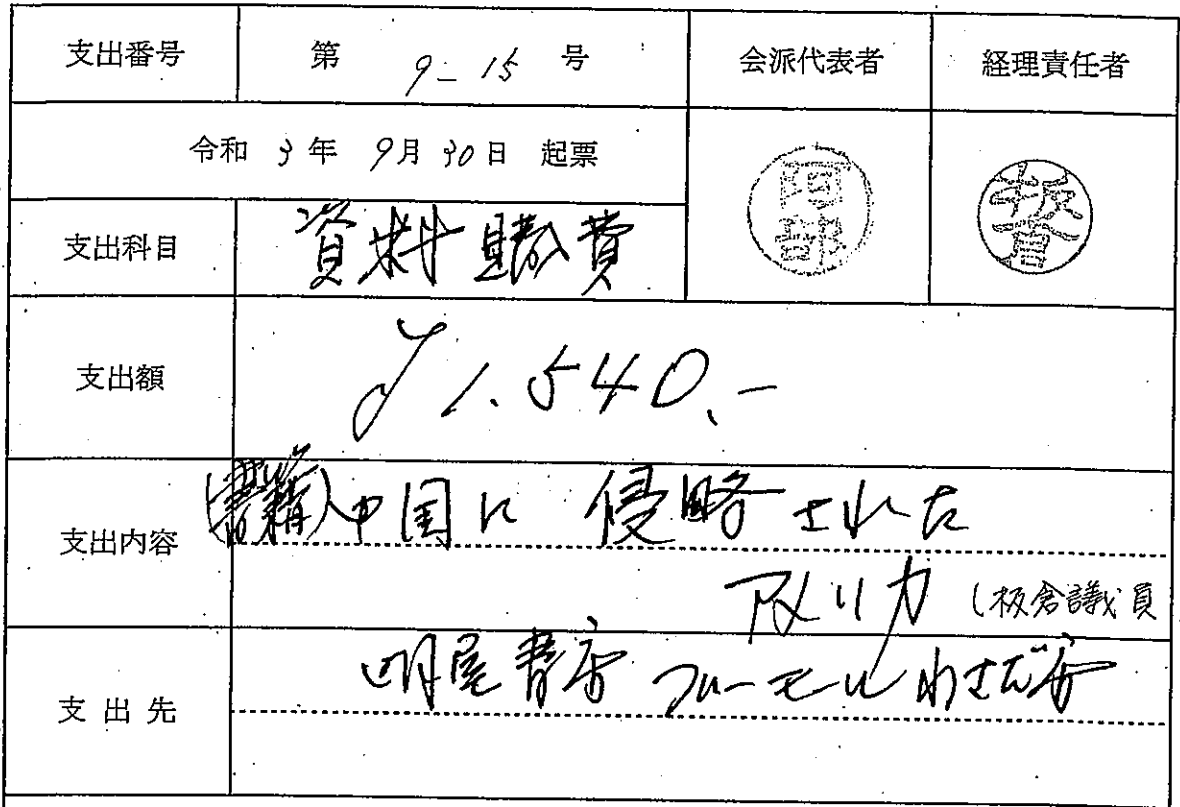 支出番号 第 9-15 号 会派代表者 経理責任者
令和 3年 9月 30日 起票
阿部
板倉
支出科目 資料購費
支出額 ¥1.540.-
支出内容 (書籍)中国に 侵略された
アメリカ (板倉議員
支出先 明屋書店 フレーモルわさだ店